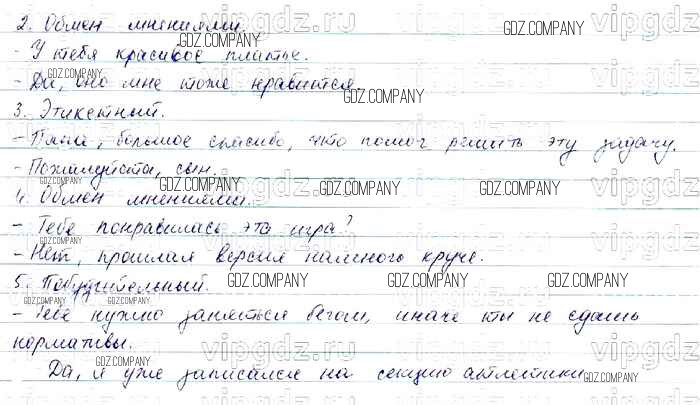 2. Обмен мнениями.
- У тебя красивое платье.
- Да, оно мне тоже нравится.
3. Этикетный.
- Папа, большое спасибо, что помог решить эту задачу.
- Пожалуйста, сын.
4. Обмен мнениями.
- Тебе понравилась эта игра?
- Нет, прошлая версия намного круче.
5. Побудительный.
- Тебе нужно заняться бегом, иначе ты не сдашь
нормативы.
Да, я уже записался на секцию атлетики.